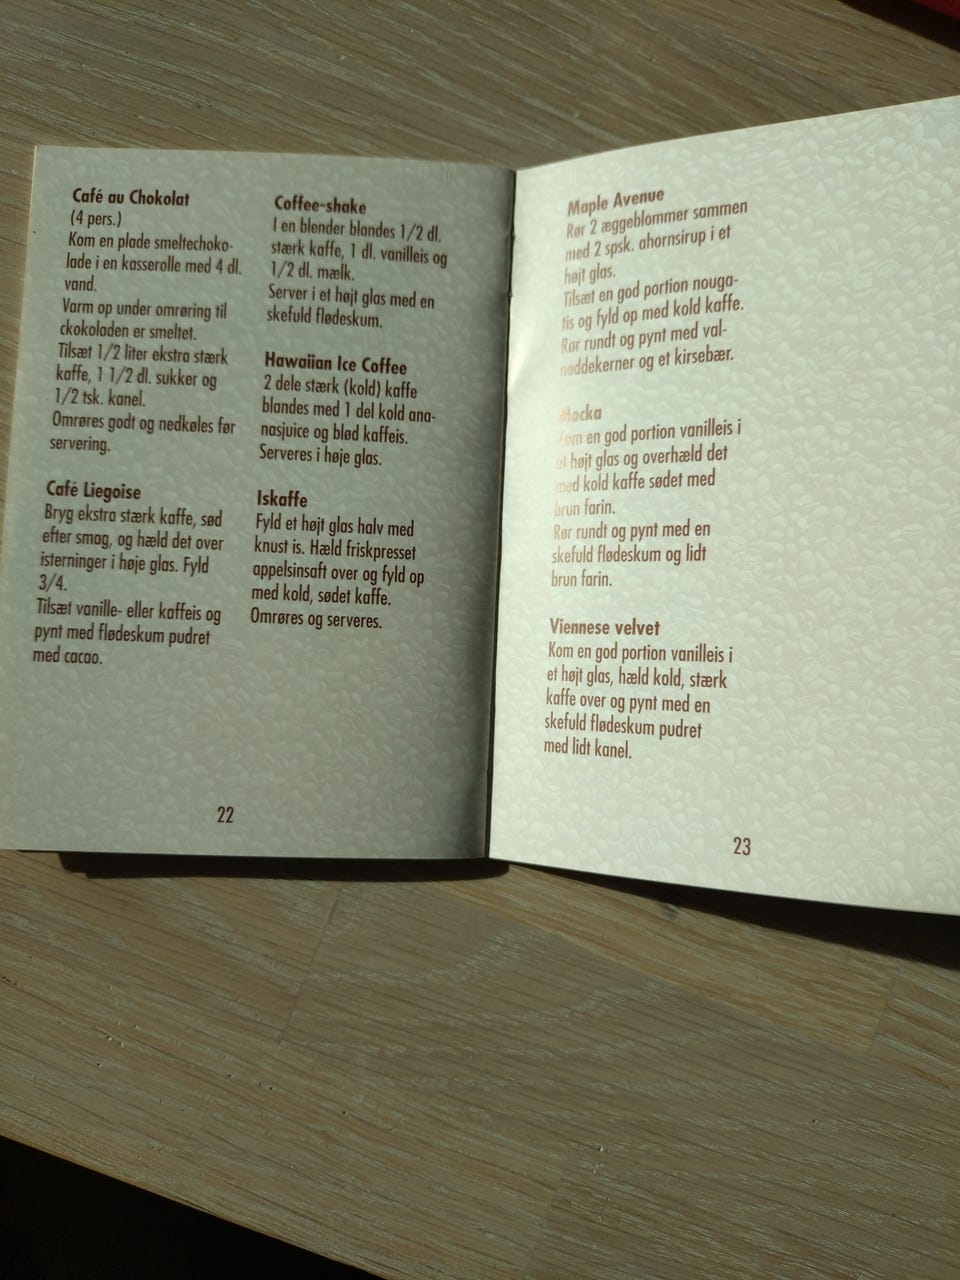 Café au Chokolat
(4 pers.)
Kom en plade smeltechoko-
lade i en kasserolle med 4 dl.
vand.
Varm op under omrøring til
ckokoladen er smeltet.
Tilsæt 1/2 liter ekstra stærk
kaffe, 1 1/2 dl. sukker og
1/2 tsk. kanel.
Omrøres godt og nedkøles før
servering.
Café Liegoise
Bryg ekstra stærk kaffe, sød
efter smag, og hæld det over
isterninger i høje glas. Fyld
3/4.
Tilsæt vanille- eller kaffeis og
pynt med flødeskum pudret
med cacao.
Coffee-shake
I en blender blandes 1/2 dl.
stærk kaffe, 1 dl. vanilleis og
1/2 dl. mælk.
Server i et højt glas med en
skefuld flødeskum.
Hawaiian Ice Coffee
2 dele stærk (kold) kaffe
blandes med 1 del kold ana-
nasjuice og blød kaffeis.
Serveres i høje glas.
Iskaffe
Fyld et højt glas halv med
knust is. Hæld friskpresset
appelsinsaft over og fyld op
med kold, sødet kaffe.
Omrøres og serveres.
22
Maple Avenue
Rør 2 æggeblommer sammen
med 2 spsk. ahornsirup i et
højt glas.
Tilsæt en god portion nouga-
tis og fyld op med kold kaffe.
Rør rundt og pynt med val-
nøddekerner og et kirsebær.
Mocka
Kom en god portion vanilleis i
et højt glas og overhæld det
med kold kaffe sødet med
brun farin.
Rør rundt og pynt med en
skefuld flødeskum og lidt
brun farin.
Viennese velvet
Kom en god portion vanilleis i
et højt glas, hæld kold, stærk
kaffe over og pynt med en
skefuld flødeskum pudret
med lidt kanel.
23